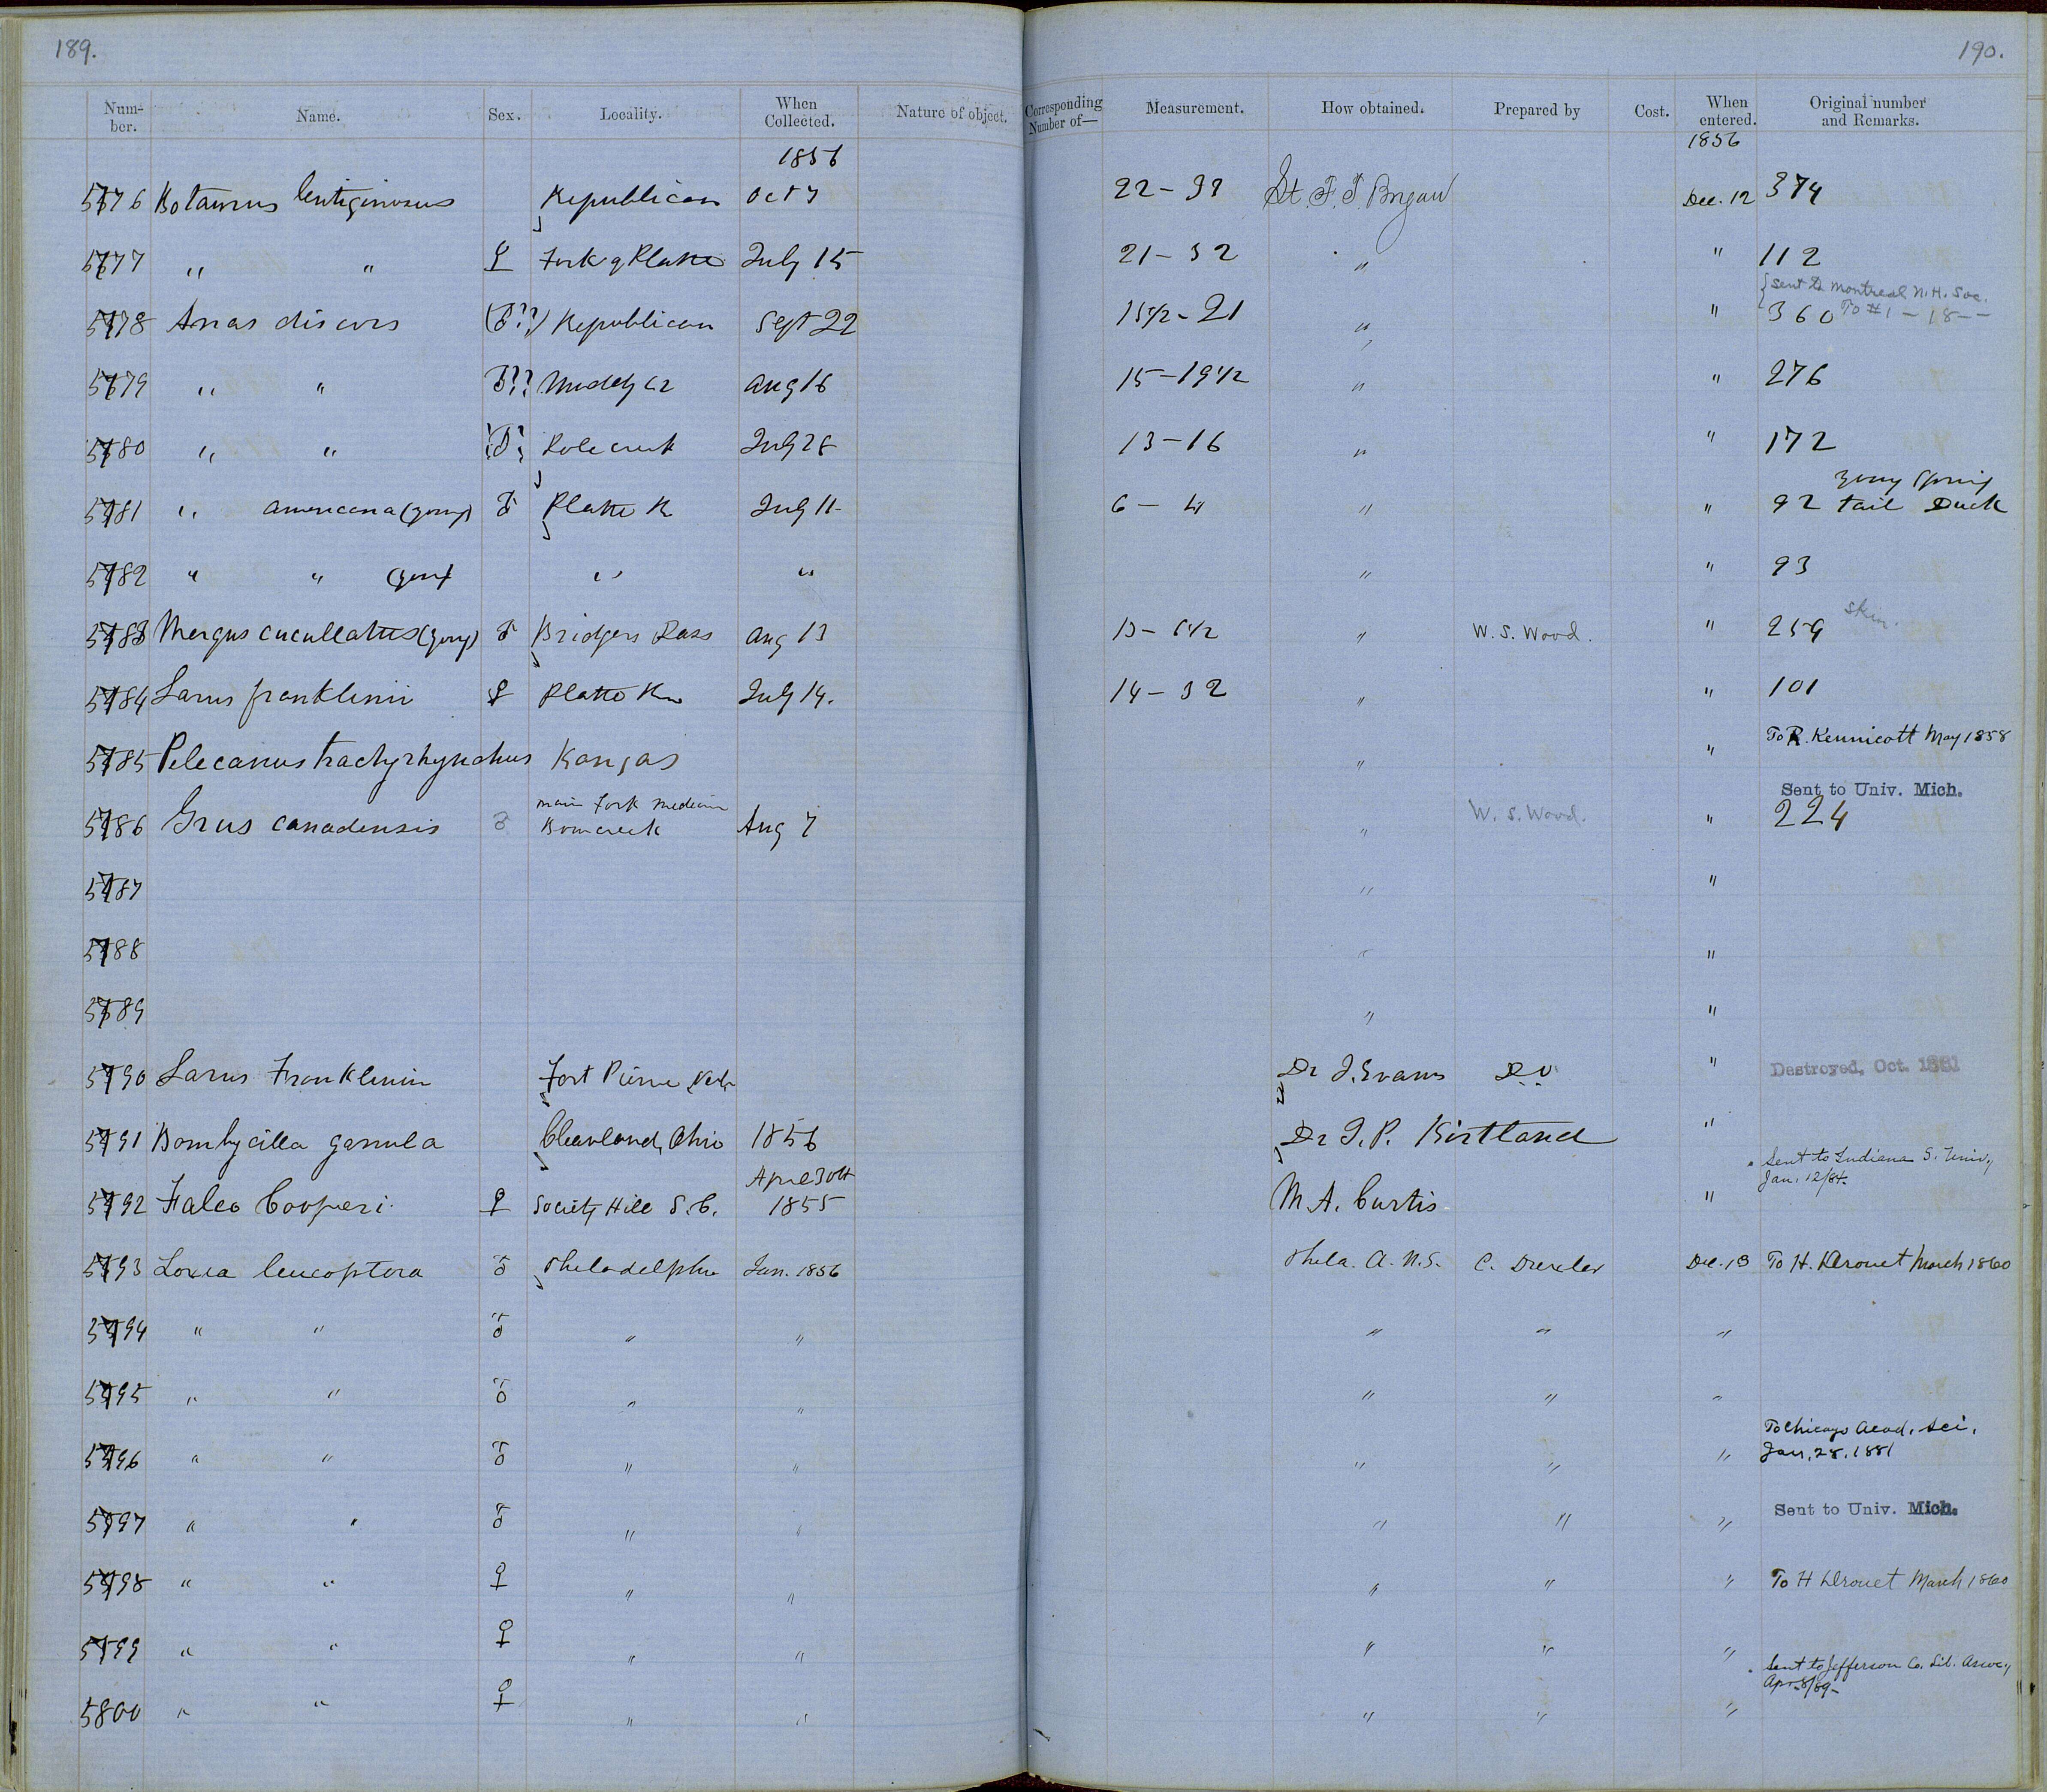 189.
190.
Num-ber. Name. Sex. Locality. When Collected. Nature of object. Corresponding Number of— Measurement. How obtained. Prepared by Cost. When entered. Original number and Remarks.
1856 1856
5776 Botaurus lentiginosus Republican Oct 7 22 - 39 Lt. F. T. Bryan Dec. 12 374
5777 " " ♀ Fork of Platte July 15 21 - 32 " " 112
{Sent to Montreal N. H. Soc.
5778 Anas discors (♂??) Republican Sept 22 15 1/2 - 21 " " 360 To #1 - 18 - -
5779 " " ♂?? Muddy Cr Aug 16 15 - 19 1/2 " " 276
5780 " " ♂? Pole creek July 28 13 - 16 " " 172
young Spring
5781 " americana (young) ♂ Platte R July 11 6 - 4 " " 92 tail Duck
5782 " " (young) " " " " 93
5783 Mergus cucullatus (young) ♂ Bridgers Pass Aug 13 13 - 6 1/2 " W. S. Wood. " 259 skin.
5784 Larus franklinii ♀ Platte R July 14. 14 - 32 " " 101
5785 Pelecanus trachyrhynchus Kansas " " To R. Kennicott May 1858
Main Fork Medicine Sent to Univ. Mich.
5786 Grus canadensis ♂ Bow creek Aug 7 " W. S. Wood. " 224
5787 " "
5788 " "
5789 " "
5790 Larus Franklinii Fort Pierre Neb Dr J. Evans " Destroyed, Oct. 1881
5791 Bombycilla garrula Cleaveland, Ohio 1856 Dr J. P. Kirtland "
April 30th Sent to Indiana S. Univ.,
Jan. 12/84.
5792 Falco Cooperi ♀ Society Hill S. C. 1855 M. A. Curtis "
5793 Loxia leucoptera ♂ Philadelphia Jan. 1856 Phila. A. N. S. C. Drexler Dec. 13 To H. Drouet March 1860
5794 " " ♂ " " " " "
5795 " " ♂ " " " " "
To Chicago Acad. Sci.
5796 " " ♂ " " " " " Jan. 28. 1881
5797 " " ♂ " " " " " Sent to Univ. Mich.
5798 " " ♀ " " " " " To H Drouet March 1860
5799 " " ♀ " " " " "
Sent to Jefferson Co. Lib. Assoc.,
Apr. 8/89-
5800 " " ♀ " " " " "